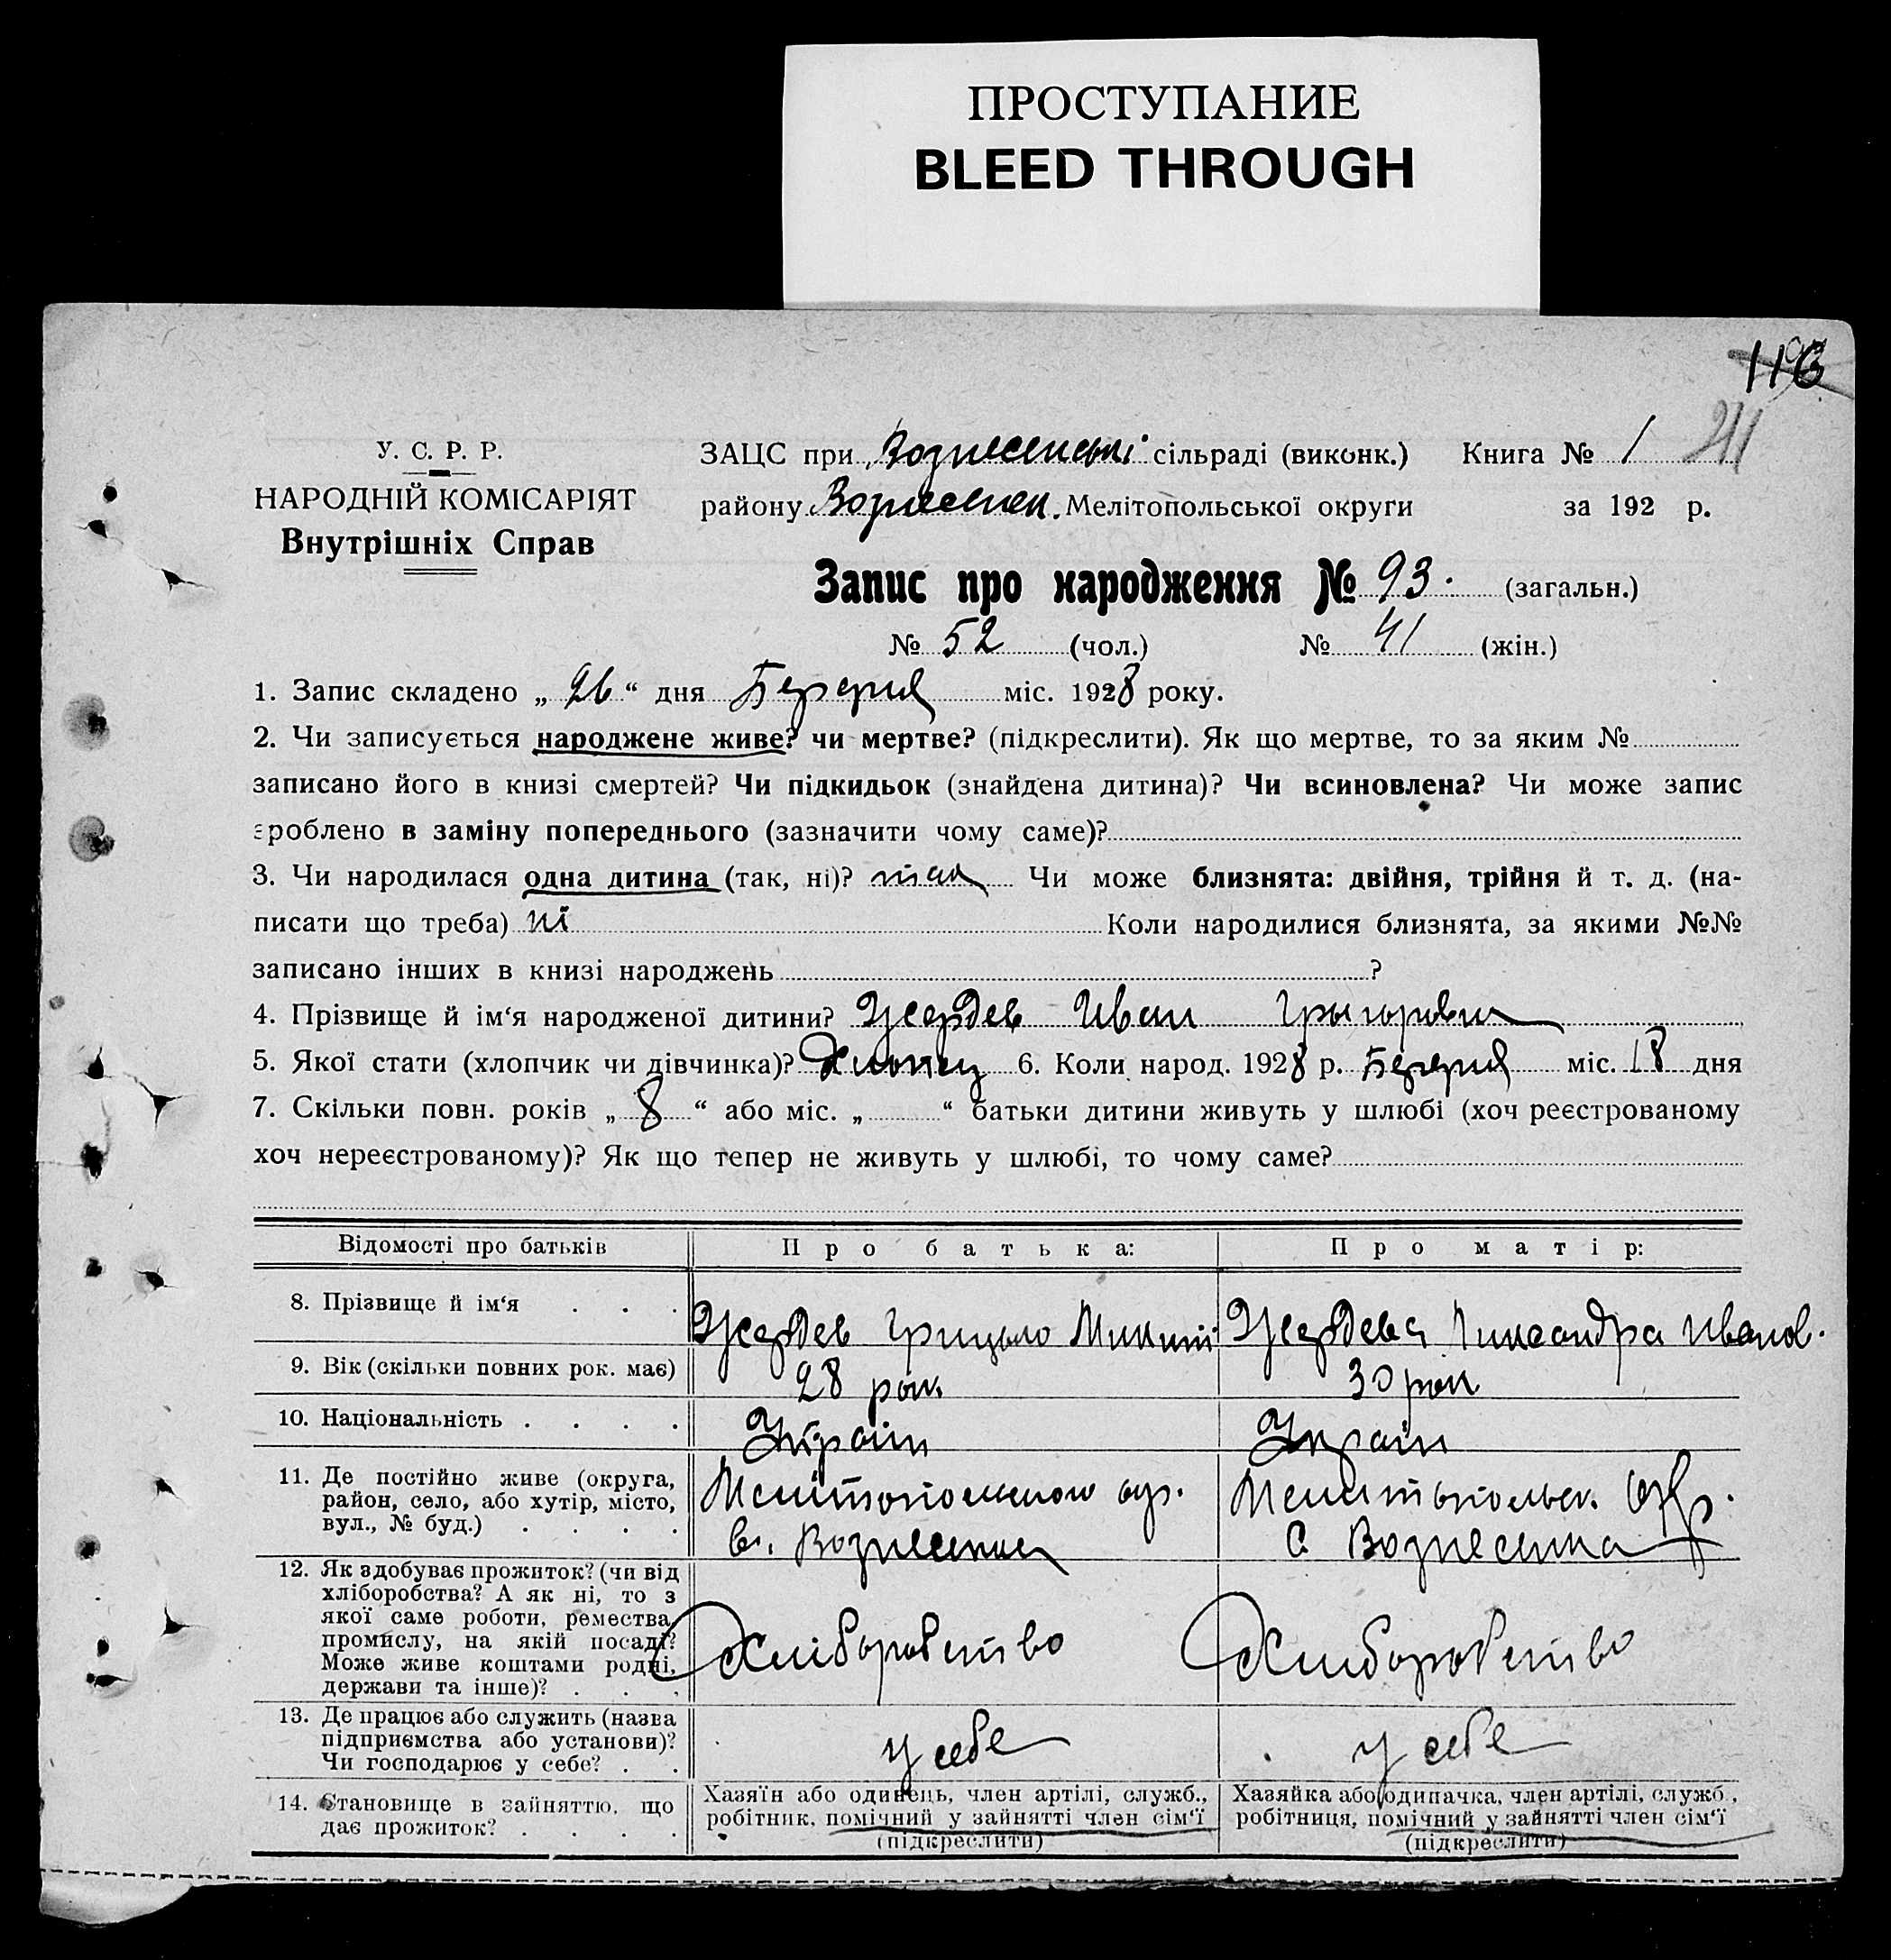 ПРОСТУПАНИЕ
BLEED THROUGH
116
211
У. С. Р. Р.
НАРОДНІЙ КОМІСАРІЯТ
Внутрішніх Справ
ЗАЦС при Вознесенській сільраді (виконк.) Книга № 1
району Вознесенск. Мелітопольської округи за 192 р.
Запис про народження № 93. (загальн.)
№ 52 (чол.) № 41 (жін.)
1. Запис складено „ 26 “ дня Березня міс. 1928 року.
2. Чи записується народжене живе? чи мертве? (підкреслити). Як що мертве, то за яким №
записано його в книзі смертей? Чи підкидьок (знайдена дитина)? Чи всиновлена? Чи може запис
зроблено в заміну попереднього (зазначити чому саме)?
3. Чи народилася одна дитина (так, ні)? так Чи може близнята: двійня, трійня й т. д. (на-
писати що треба) ні Коли народилися близнята, за якими №№
записано інших в книзі народжень ?
4. Прізвище й ім‘я народженої дитини? Жердев Иван Грыгорович
5. Якої стати (хлопчик чи дівчинка)? Хлопец 6. Коли народ. 1928 р. Березня міс. 18 дня
7. Скільки повн. років „ 8 “ або міс. „ “ батьки дитини живуть у шлюбі (хоч реєстрованому
хоч нереєстрованому)? Як що тепер не живуть у шлюбі, то чому саме?
Відомості про батьків Про батька: Про матір:
8. Прізвище й ім‘я . . . Жердев Грицько Микит. Жердева Ликсандра Иванов.
9. Вік (скільки повних рок. має) 28 рок. 30 рок
10. Національність . . . . Україн Україн
11. Де постійно живе (округа,
район, село, або хутір, місто,
вул., № буд.) . . . .
Мелітопольської окр.
с. Вознесенка
Мелитопольск. окр.
с Вознесенка
12. Як здобуває прожиток? (чи від
хліборобства? А як ні, то з
якої саме роботи, ремества,
промислу, на якій посаді?
Може живе коштами родні,
держави та інше)? . . .
Хліборобство
Хлиборобство
13. Де працює або служить (назва
підприємства або установи)?
Чи господарює у себе? . .
у себе
у себе
14. Становище в зайняттю, що
дає прожиток? . . . .
Хазяїн або одинець, член артілі, служб.,
робітник, помічний у зайнятті член сім‘ї
(підкреслити)
Хазяйка або одиначка, член артілі, служб.,
робітниця, помічний у зайнятті член сім‘ї
(підкреслити)